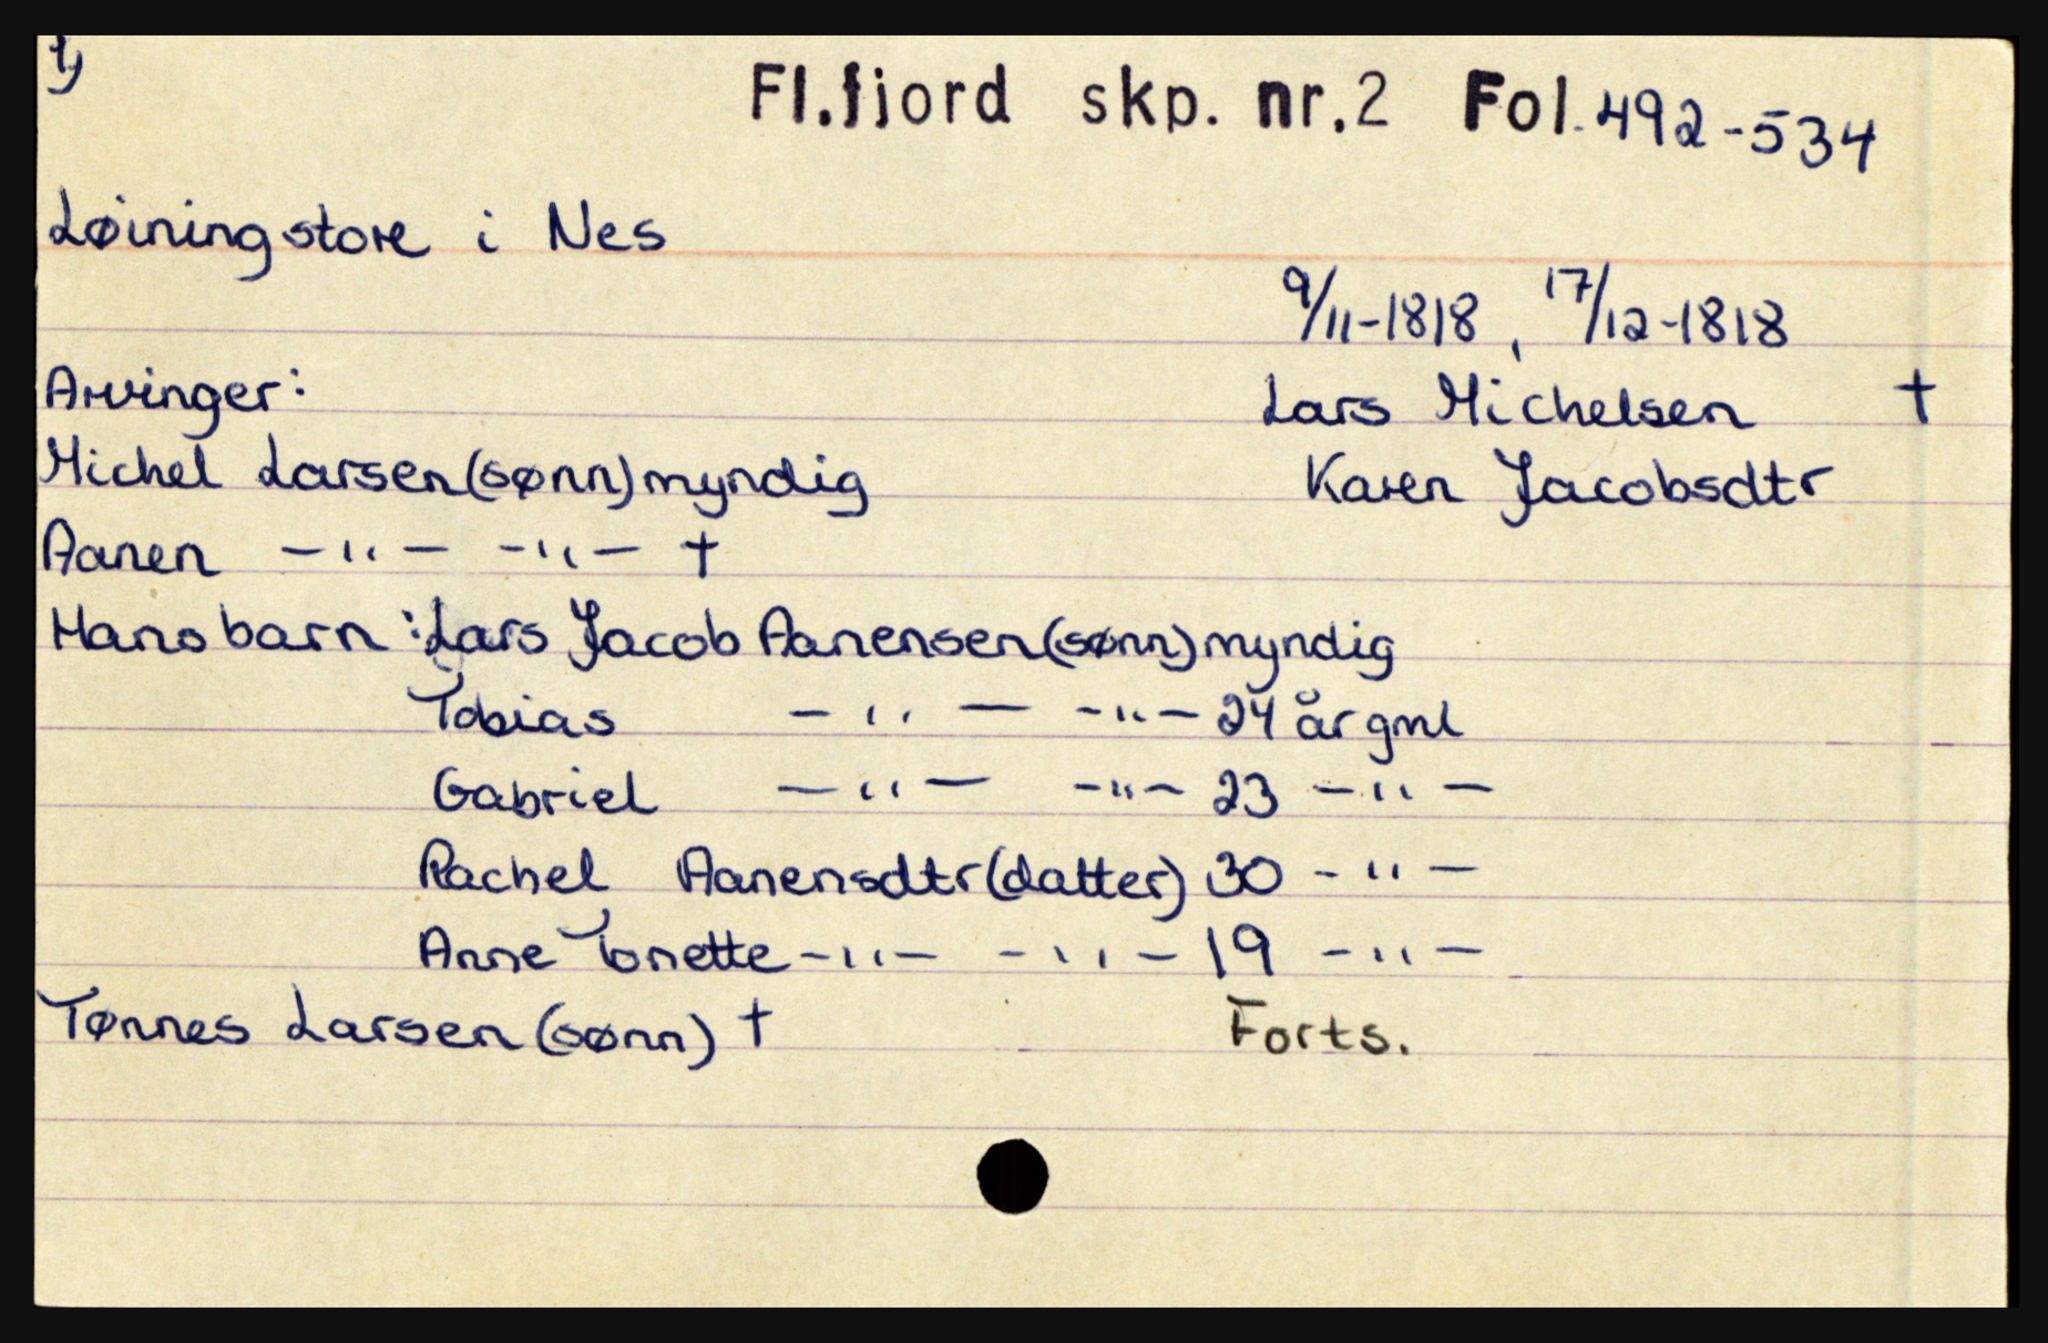 1)
Fl.fjord skp. nr.2 Fol. 492-534
Løiningstore i Nes
9/11-1818, 17/12-1818
Arvinger: Lars Michelsen †
Michel Larsen (sønn) myndig Karen Jacobsdtr
Aanen -"- -"- †
Hans barn: Lars Jacob Aanensen (sønn) myndig
Tobias -"- -"- 24 år gml
Gabriel -"- -"- 23 -"-
Rachel Aanensdtr (datter) 30 -"-
Anne Tonette -"- -"- 19 -"-
Tønnes Larsen (sønn) † Forts.